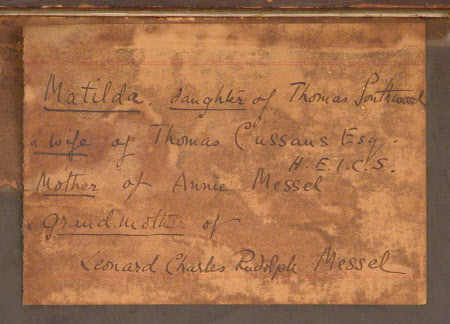 Matilda, daughter of Thomas Southwood
& wife of Thomas Cussans Esq.
H.E.I.C.S.
Mother of Annie Messel
& grandmother of
Leonard Charles Rudolph Messel